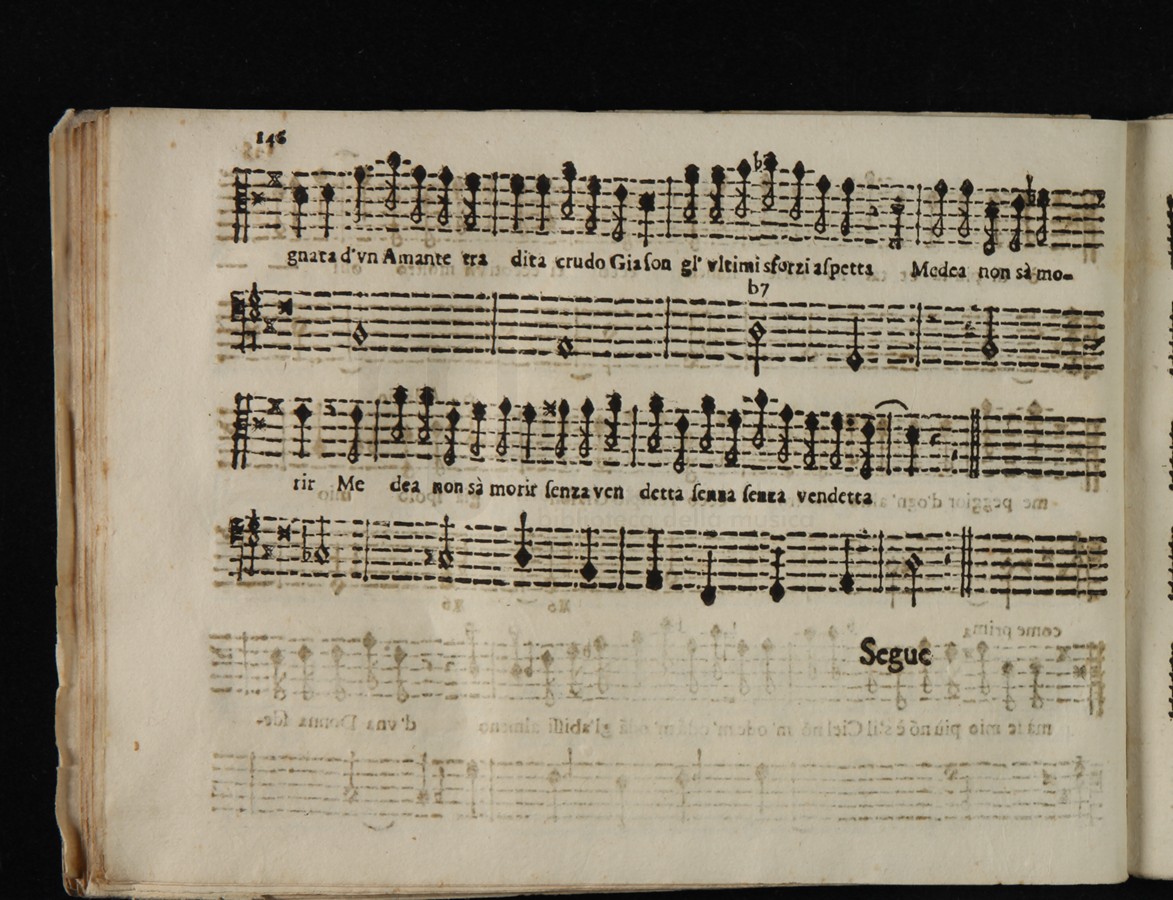 146
gnata d'vn Amante tra dita crudo Giaſon gl' vltimi sforzi aſpetta Medea non sà mo-
b7
rir Me dea non sà morir ſenza ven detta ſenza ſenza vendetta
Segue